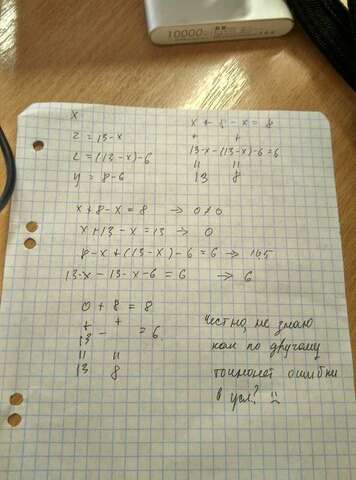 10000
x
z = 13 - x
z = (13 - x) - 6
y = 8 - 6
x + 8 - x = 8
+ +
13-x-(13-x)-6=6
11 11
13 8
x + 8 - x = 8 → 0
x + 13 - x = 13 → 0
8 - x + (13 - x) - 6 = 6 →
13-x - 13-x-6 = 6 → 6
0 + 8 = 8
+ +
13 - = 6
11 11
13 8
Честно, не знаю
как по другому
ошибки
в усл? :(